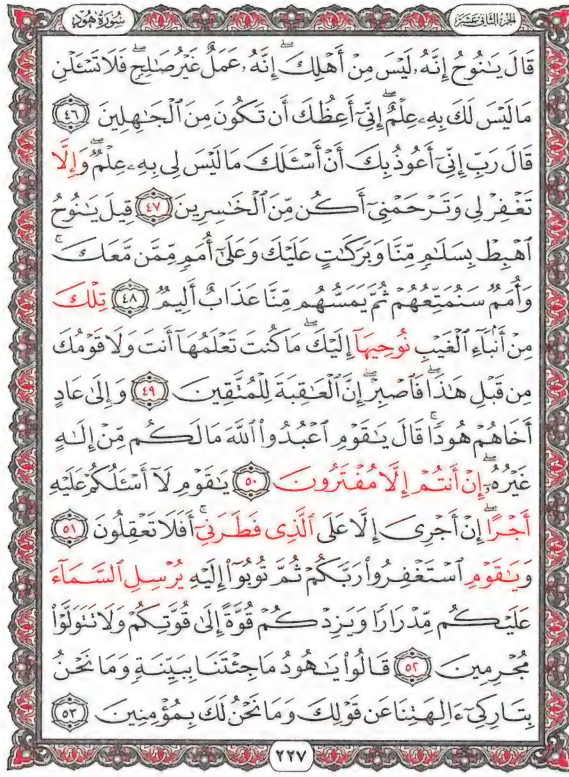 الجزء الثاني عشر
سُورَةُ هُودٍ
قَالَ يَٰنُوحُ إِنَّهُۥ لَيْسَ مِنْ أَهْلِكَ ۖ إِنَّهُۥ عَمَلٌ غَيْرُ صَٰلِحٍ ۖ فَلَا تَسْـَٔلْنِ
مَا لَيْسَ لَكَ بِهِۦ عِلْمٌ ۖ إِنِّىٓ أَعِظُكَ أَن تَكُونَ مِنَ ٱلْجَٰهِلِينَ ٤٦
قَالَ رَبِّ إِنِّىٓ أَعُوذُ بِكَ أَنْ أَسْـَٔلَكَ مَا لَيْسَ لِى بِهِۦ عِلْمٌ ۖ وَإِلَّا
تَغْفِرْ لِى وَتَرْحَمْنِىٓ أَكُن مِّنَ ٱلْخَٰسِرِينَ ٤٧ قِيلَ يَٰنُوحُ
ٱهْبِطْ بِسَلَٰمٍ مِّنَّا وَبَرَكَٰتٍ عَلَيْكَ وَعَلَىٰٓ أُمَمٍ مِّمَّن مَّعَكَ ۚ
وَأُمَمٌ سَنُمَتِّعُهُمْ ثُمَّ يَمَسُّهُم مِّنَّا عَذَابٌ أَلِيمٌ ٤٨ تِلْكَ
مِنْ أَنۢبَآءِ ٱلْغَيْبِ نُوحِيهَآ إِلَيْكَ ۖ مَا كُنتَ تَعْلَمُهَآ أَنتَ وَلَا قَوْمُكَ
مِن قَبْلِ هَٰذَا ۖ فَٱصْبِرْ ۖ إِنَّ ٱلْعَٰقِبَةَ لِلْمُتَّقِينَ ٤٩ وَإِلَىٰ عَادٍ
أَخَاهُمْ هُودًا ۚ قَالَ يَٰقَوْمِ ٱعْبُدُوا۟ ٱللَّهَ مَا لَكُم مِّنْ إِلَٰهٍ
غَيْرُهُۥٓ ۖ إِنْ أَنتُمْ إِلَّا مُفْتَرُونَ ٥٠ يَٰقَوْمِ لَآ أَسْـَٔلُكُمْ عَلَيْهِ
أَجْرًا ۖ إِنْ أَجْرِىَ إِلَّا عَلَى ٱلَّذِى فَطَرَنِىٓ ۚ أَفَلَا تَعْقِلُونَ ٥١
وَيَٰقَوْمِ ٱسْتَغْفِرُوا۟ رَبَّكُمْ ثُمَّ تُوبُوٓا۟ إِلَيْهِ يُرْسِلِ ٱلسَّمَآءَ
عَلَيْكُم مِّدْرَارًا وَيَزِدْكُمْ قُوَّةً إِلَىٰ قُوَّتِكُمْ وَلَا تَتَوَلَّوْا۟
مُجْرِمِينَ ٥٢ قَالُوا۟ يَٰهُودُ مَا جِئْتَنَا بِبَيِّنَةٍ وَمَا نَحْنُ
بِتَارِكِىٓ ءَالِهَتِنَا عَن قَوْلِكَ وَمَا نَحْنُ لَكَ بِمُؤْمِنِينَ ٥٣
٢٢٧